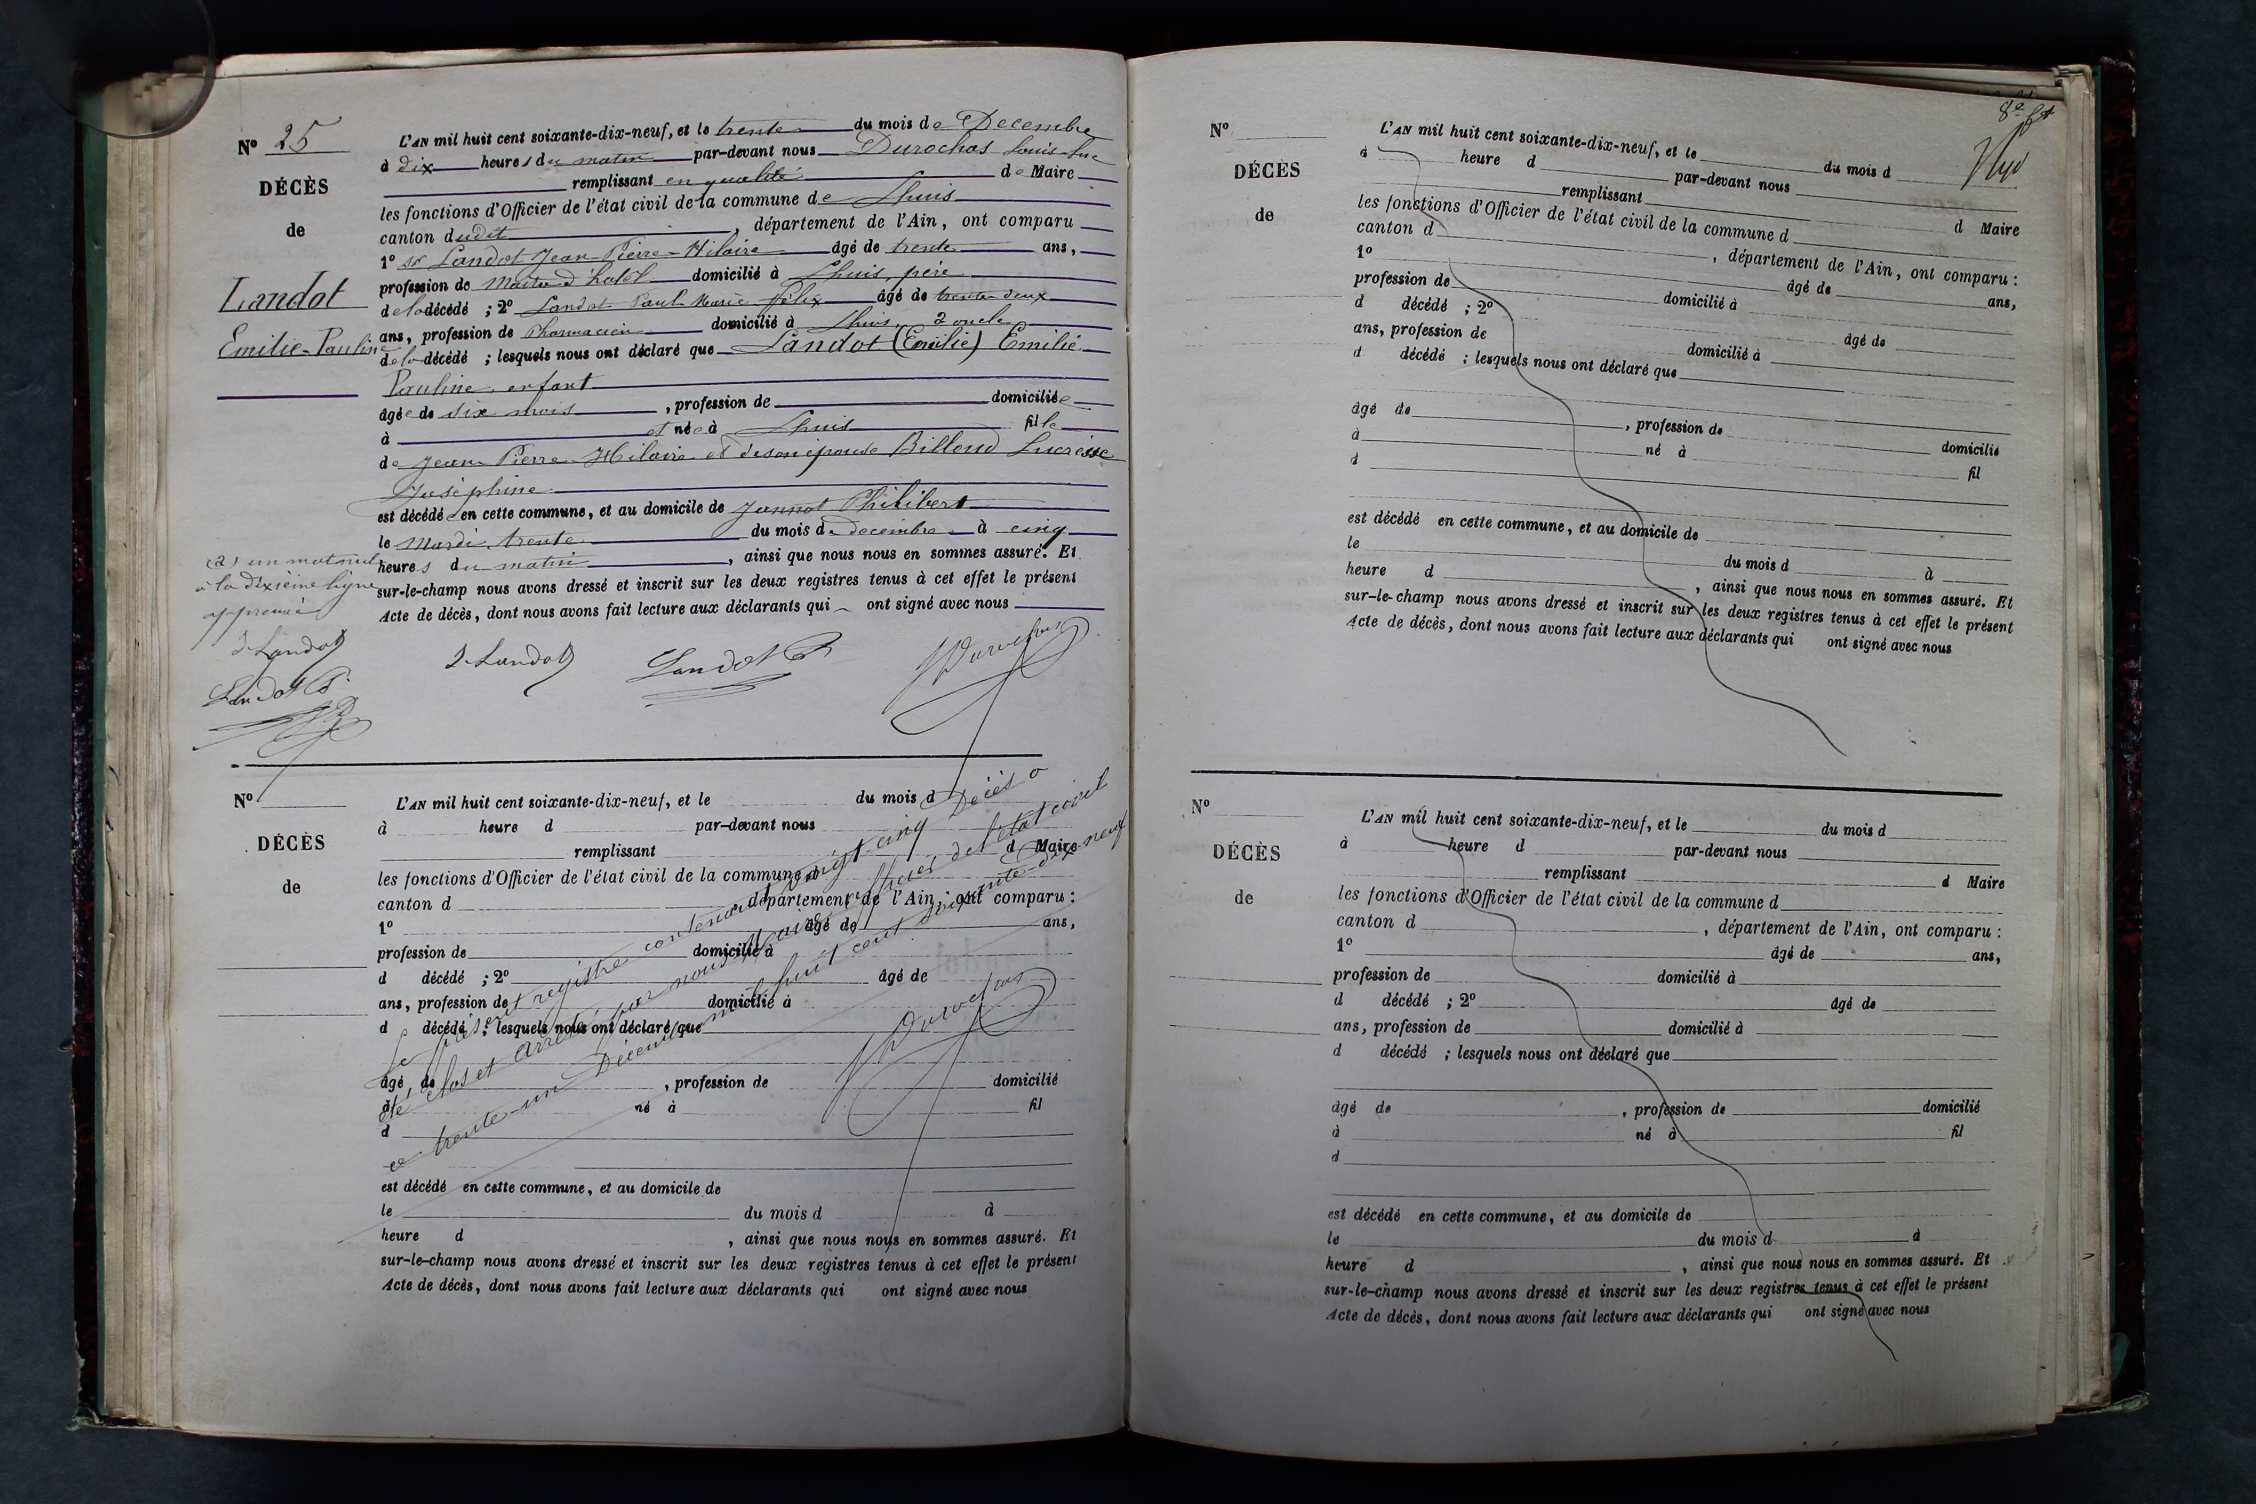 Nº 25
DÉCÈS
de
Landot
Emilie-Pauline
L'AN mil huit cent soixante-dix-neuf, et le trente du mois de Decembre
à dix heures du matin par-devant nous Durochas Louis-Luc
remplissant en qualité de Maire
les fonctions d'Officier de l'état civil de la commune de Lhuis
canton dudit, département de l'Ain, ont comparu
1º sr Landot Jean-Pierre-Hilaire âgé de trente ans,
profession de Maitre d'hotel domicilié à Lhuis, père
de la décédé ; 2º Landot Paul Marie Félix âgé de trente deux
ans, profession de Pharmacien domicilié à Lhuis, 2 oncle
de la décédé ; lesquels nous ont déclaré que Landot (Emilie) Emilie
Pauline, enfant
âgée de six mois, profession de domiciliée
à et née à Lhuis fille
de Jean Pierre-Hilaire et de son épouse Billoud Lucresse
Joséphine
est décédée en cette commune, et au domicile de Jannot Philibert
le Mardi trente du mois de decembre à cinq
heures du matin, ainsi que nous nous en sommes assuré. Et
sur-le-champ nous avons dressé et inscrit sur les deux registres tenus à cet effet le présent
Acte de décès, dont nous avons fait lecture aux déclarants qui ont signé avec nous
(2) un mot nul
à la dixième ligne
approuvé
J Landot
Landot P.
J Landot Landot P Durochas
Nº
DÉCÈS
de
L'AN mil huit cent soixante-dix-neuf, et le du mois d
à heure d par-devant nous
remplissant d Maire
les fonctions d'Officier de l'état civil de la commune d
canton d, département de l'Ain, ont comparu :
1º âgé de ans,
profession de domicilié à
d décédé ; 2º âgé de
ans, profession de domicilié à
d décédé ; lesquels nous ont déclaré que
âgé de, profession de domicilié
à né à fil
d
est décédé en cette commune, et au domicile de
le du mois d à
heure d, ainsi que nous nous en sommes assuré. Et
sur-le-champ nous avons dressé et inscrit sur les deux registres tenus à cet effet le présent
Acte de décès, dont nous avons fait lecture aux déclarants qui ont signé avec nous
Le présent registre contenant vingt-cinq Décès a
été clos et arrêté par nous Maire officier de l'état civil
ce trente-un Décembre mil huit cent soixante-dix-neuf
Durochas
8e
Nº
DÉCÈS
de
L'AN mil huit cent soixante-dix-neuf, et le du mois d
à heure d par-devant nous
remplissant d Maire
les fonctions d'Officier de l'état civil de la commune d
canton d, département de l'Ain, ont comparu :
1º âgé de ans,
profession de domicilié à
d décédé ; 2º âgé de
ans, profession de domicilié à
d décédé ; lesquels nous ont déclaré que
âgé de, profession de domicilié
à né à fil
d
est décédé en cette commune, et au domicile de
le du mois d à
heure d, ainsi que nous nous en sommes assuré. Et
sur-le-champ nous avons dressé et inscrit sur les deux registres tenus à cet effet le présent
Acte de décès, dont nous avons fait lecture aux déclarants qui ont signé avec nous
Nº
DÉCÈS
de
L'AN mil huit cent soixante-dix-neuf, et le du mois d
à heure d par-devant nous
remplissant d Maire
les fonctions d'Officier de l'état civil de la commune d
canton d, département de l'Ain, ont comparu :
1º âgé de ans,
profession de domicilié à
d décédé ; 2º âgé de
ans, profession de domicilié à
d décédé ; lesquels nous ont déclaré que
âgé de, profession de domicilié
à né à fil
d
est décédé en cette commune, et au domicile de
le du mois d à
heure d, ainsi que nous nous en sommes assuré. Et
sur-le-champ nous avons dressé et inscrit sur les deux registres tenus à cet effet le présent
Acte de décès, dont nous avons fait lecture aux déclarants qui ont signé avec nous